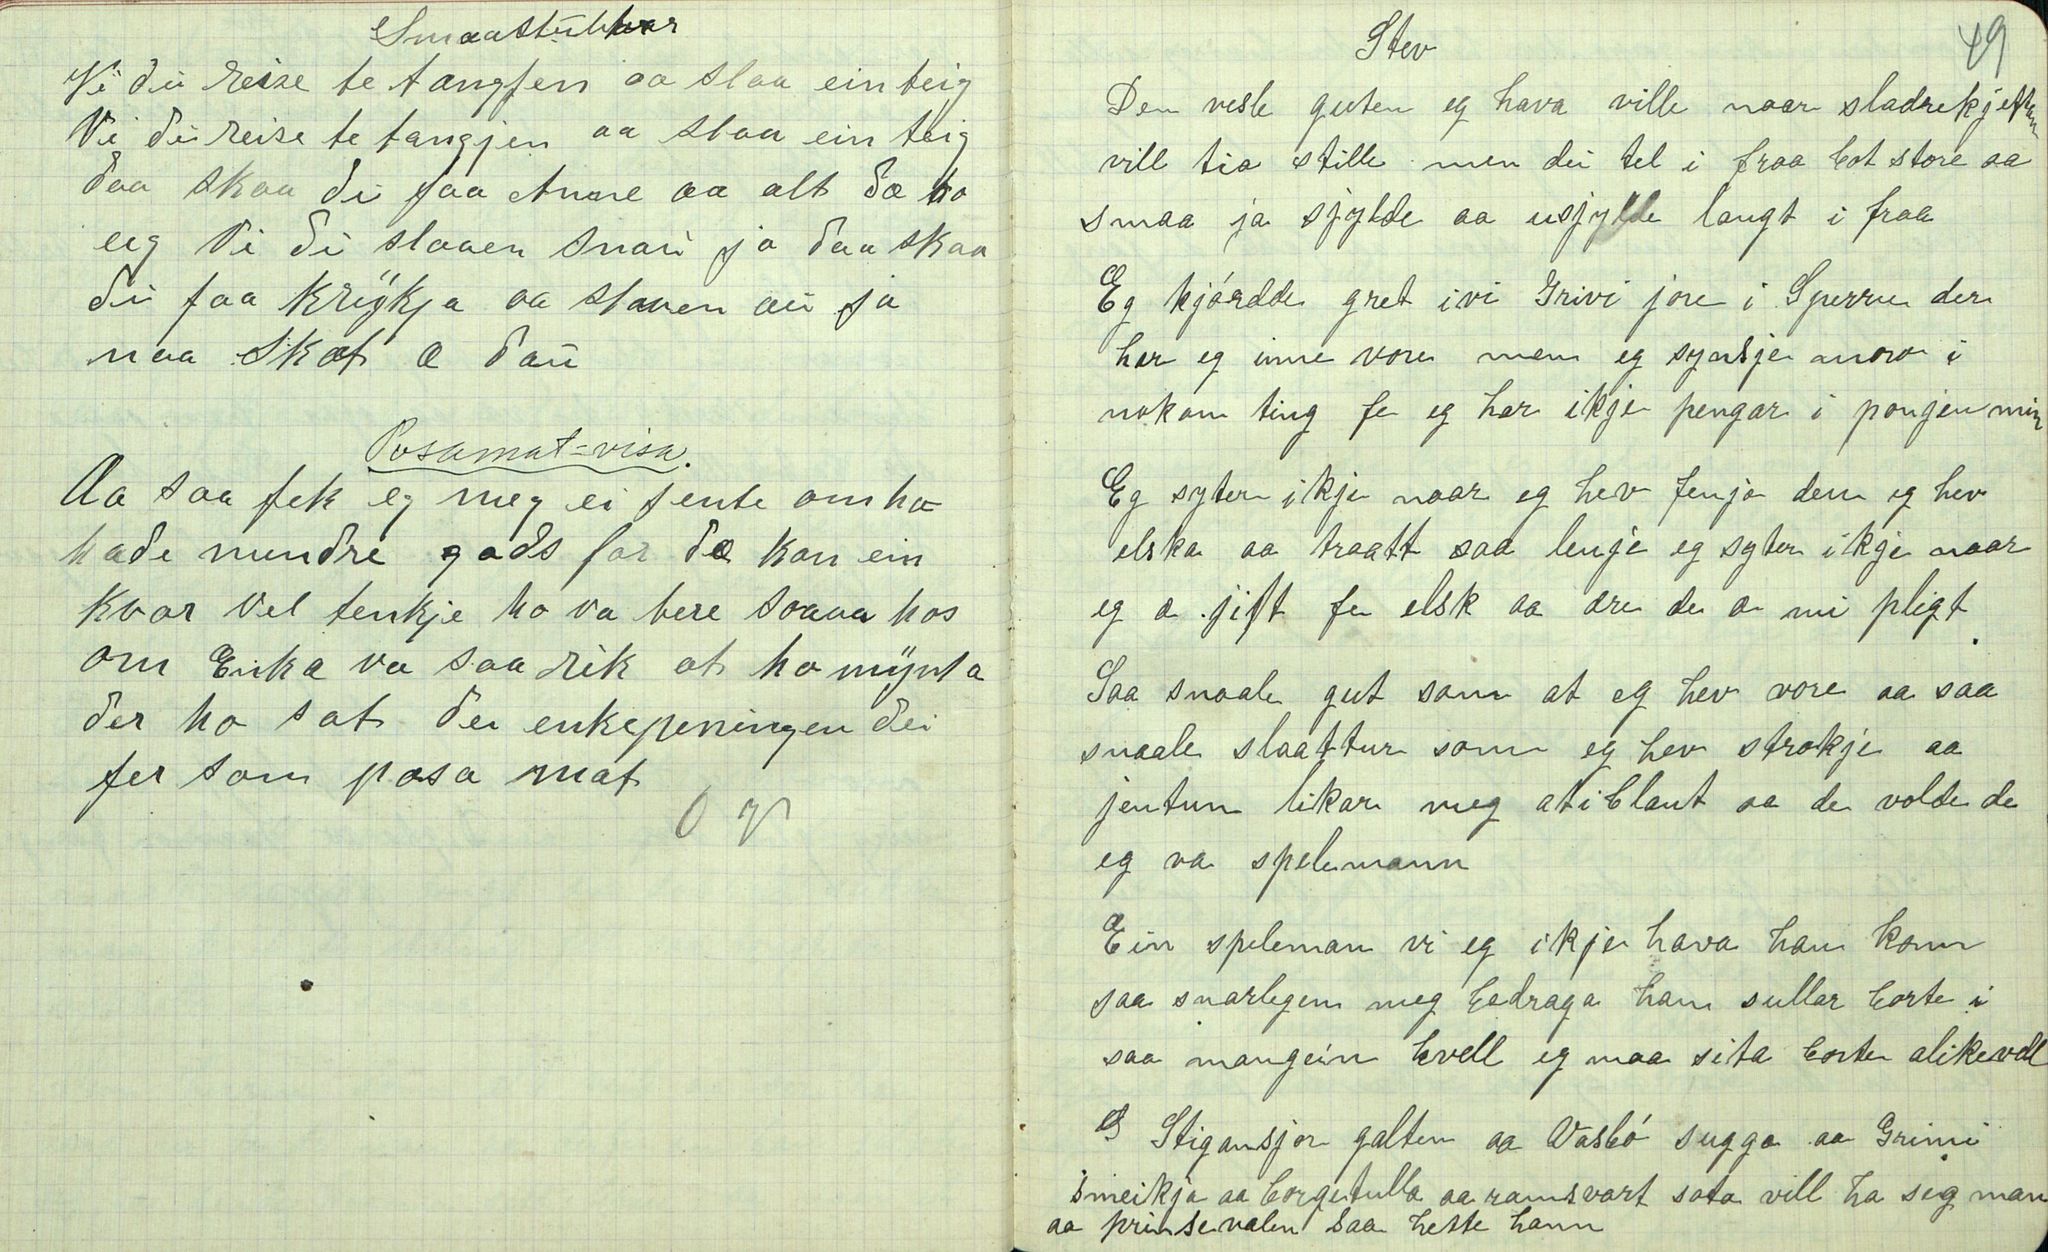 Smaastubbar
Vi du reise te tangjen aa slaa ein teig
Vi du reise te tangjen aa slaa ein teig
daa skaa du faa Anne aa alt dæ ho
eig Vi du slaaen snau ja daa skaa
du faa Krykja aa slaaen au ja
naa skat æ dau
Posamat=visa.
Aa saa fek eg meg ei jente om ho
hade mindre gods for dæ kan ein
kvar vel tenkje ho va bere hos
om Enka va saa rik at ho mynta
der ho sat dei enkepeningen dei
fer som posa mat
49
Stev
Den vesle guten eg hava ville naar sladrekjeften
vill tia stille men dei tel i fraa bot store aa
smaa ja sjylde aa usjylde langt i fraa
Eg kjórdde gret ivi Grivi jore i Sperrue der
har eg inne vore men eg synsje anorv i
nokom ting fe eg har ikje pengar i pongjen min
Eg syter ikje naar eg hev fenja den eg hev
elska aa traatt saa lenje eg syter ikje naar
eg æ jift fe elsk aa ære de æ mi pligt.
Saa snaale gut som at eg hev vore aa saa
snaale slaattur som eg hev strokje aa
jentun likar meg ati blant aa de volde de
eg va spelemann
Ein speleman vi eg ikje hava han kann
saa snarlegen meg bedraga han sullar borte i
saa mangein kvell eg maa sita borte alikevell
Stigansjor galten aa Vasbó sugga aa Grimi
smeikja aa borgetulla aa ramsvart sota vill ha seg man
aa prinsevalen saa hette hann